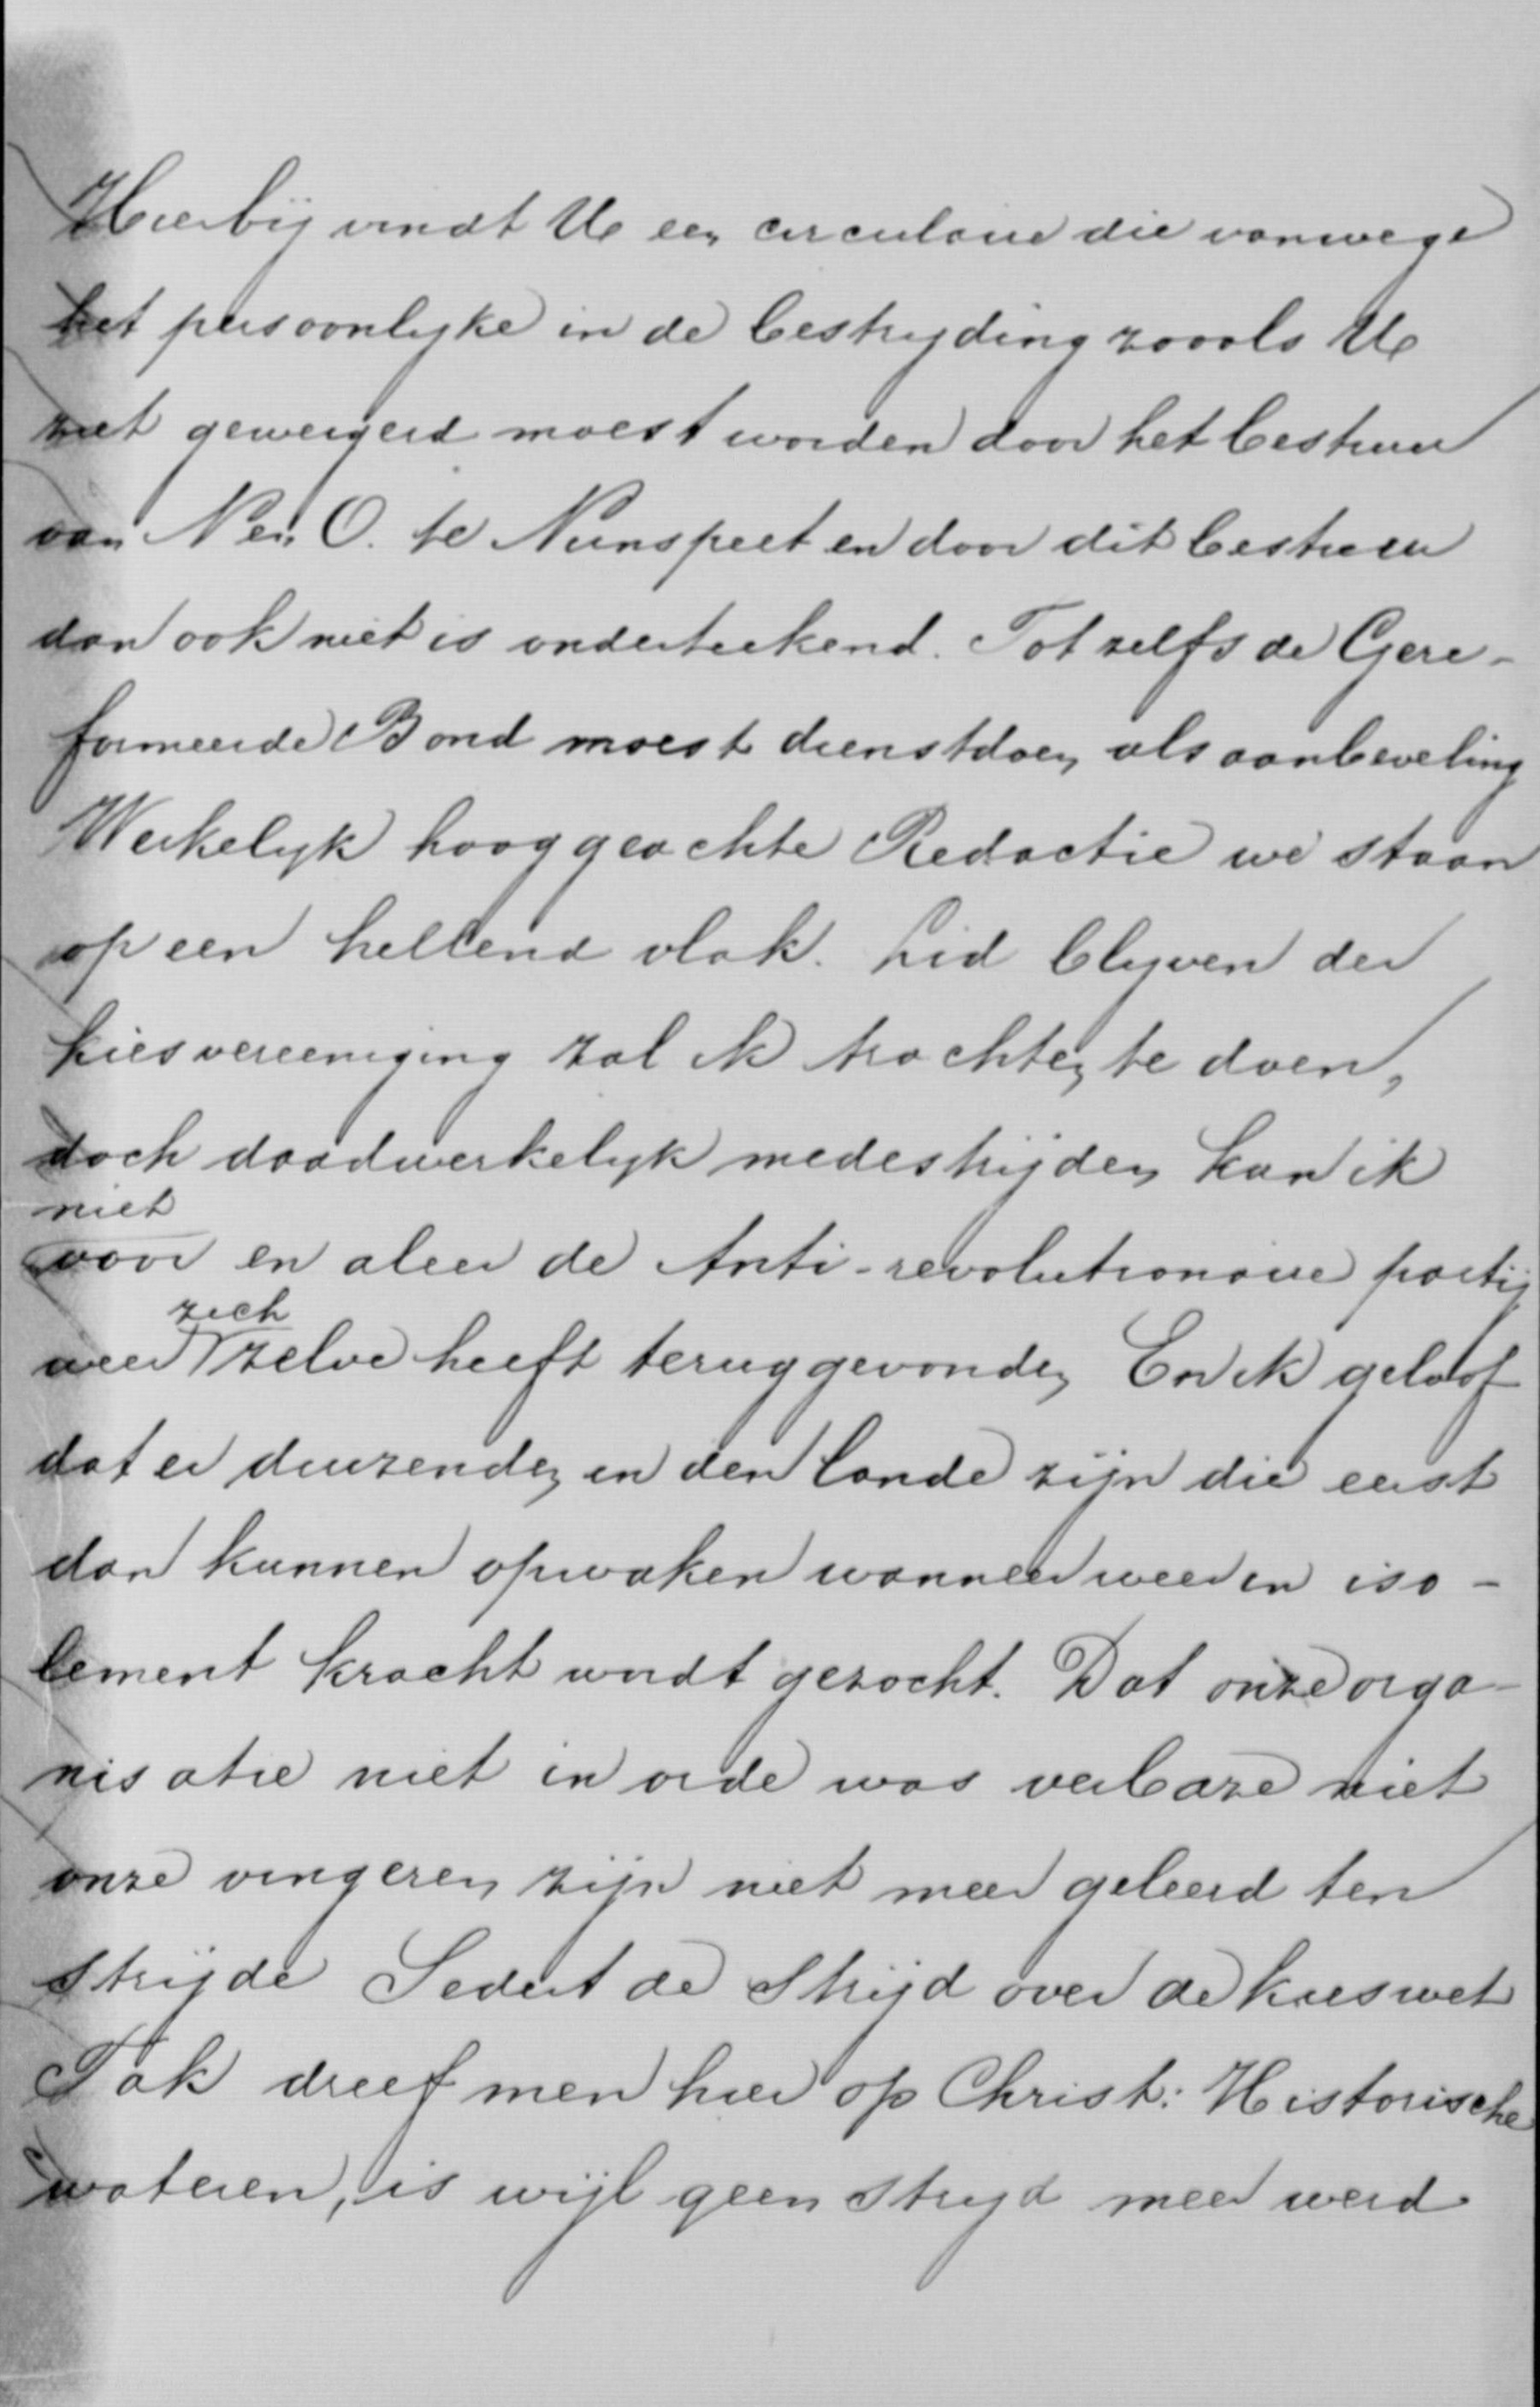 Hierbij vindt U een circulaire die vanwege
het persoonlyke in de bestryding zooals U
ziet geweigerd moest worden door het bestuur
van N en O. te Nunspeet en door dit bestuur
dan ook niet is onderteekend. Tot zelfs de Gere-
formeerde Bond moest dienstdoen als aanbeveling
Werkelyk hooggeachte Redactie we staan
op een hellend vlak. Lid blyven der
kiesvereeniging zal ik trachten te doen,
doch daadwerkelyk medestrijden kan ik
niet
voor en aleer de Anti-revolutionaire partij
zich
weer zelve heeft teruggevonden En ik geloof
dat er duizenden in den lande zijn die eerst
dan kunnen opwaken wanneer weer in iso-
lement kracht wordt gezocht. Dat onze orga-
nisatie niet in orde was verbaze niet
onze vingeren zijn niet meer geleerd ten
strijde Sedert de strijd over de kieswet
Tak dreef men hier op Christ: Historische
wateren, is wijl geen stryd meer werd